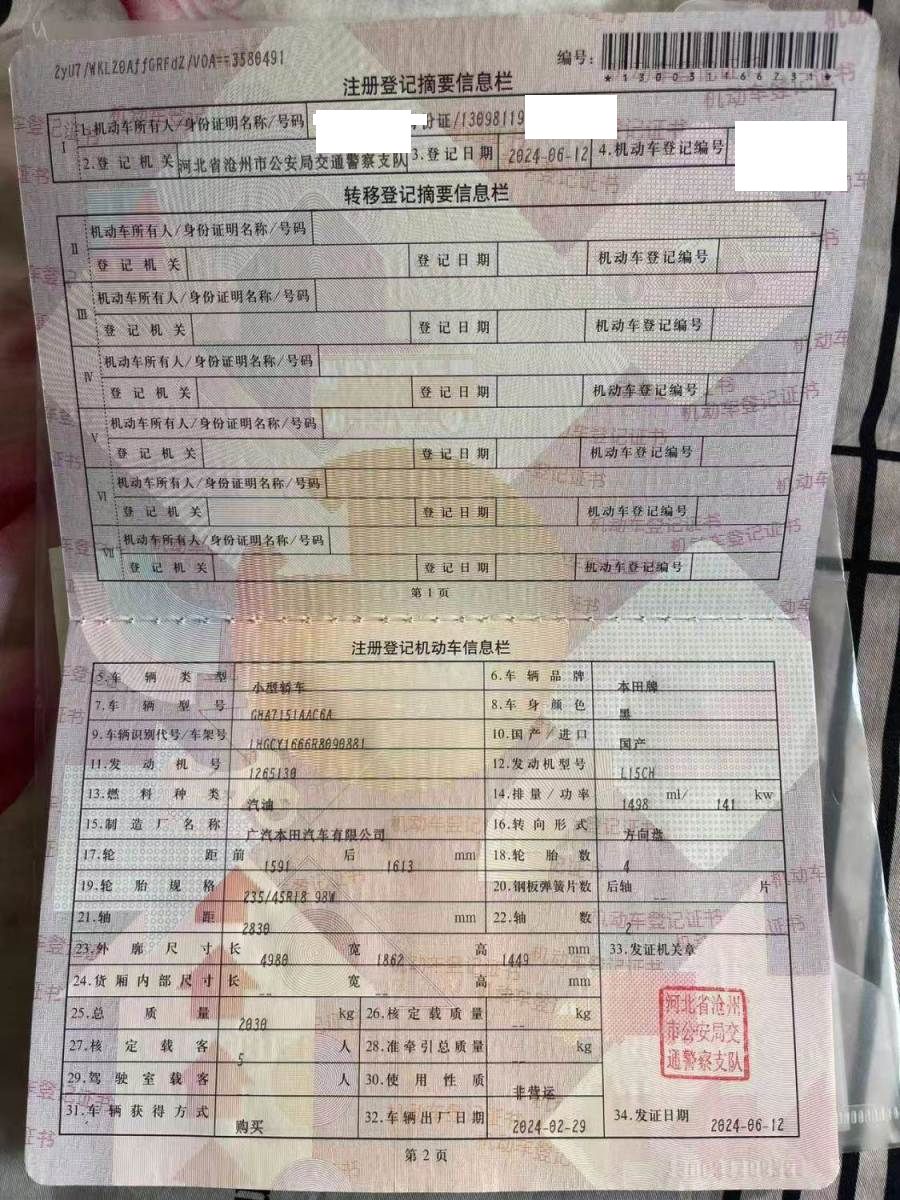 2yU7/WKL20AffGRFdZ/VOA==3580491
编号:
*130031466231*
注册登记摘要信息栏
I
1.机动车所有人/身份证明名称/号码 份证/13098119
2.登记机关 河北省沧州市公安局交通警察支队 3.登记日期 2024-06-12 4.机动车登记编号
转移登记摘要信息栏
II
机动车所有人/身份证明名称/号码
登记机关 登记日期 机动车登记编号
III
机动车所有人/身份证明名称/号码
登记机关 登记日期 机动车登记编号
IV
机动车所有人/身份证明名称/号码
登记机关 登记日期 机动车登记编号
V
机动车所有人/身份证明名称/号码
登记机关 登记日期 机动车登记编号
VI
机动车所有人/身份证明名称/号码
登记机关 登记日期 机动车登记编号
VII
机动车所有人/身份证明名称/号码
登记机关 登记日期 机动车登记编号
第1页
注册登记机动车信息栏
5.车辆类型 小型轿车 6.车辆品牌 本田牌
7.车辆型号 GHA7151AAC6A 8.车身颜色 黑
9.车辆识别代号/车架号 LHGCY1666R8090881 10.国产/进口 国产
11.发动机号 1265130 12.发动机型号 L15CH
13.燃料种类 汽油 14.排量/功率 1498 ml/ 141 kw
15.制造厂名称 广汽本田汽车有限公司 16.转向形式 方向盘
17.轮距 前 1591 后 1613 mm 18.轮胎数 4
19.轮胎规格 235/45R18 98W 20.钢板弹簧片数 后轴 -- 片
21.轴距 2830 mm 22.轴数 2
23.外廓尺寸 长 4980 宽 1862 高 1449 mm 33.发证机关章
24.货厢内部尺寸 长 -- 宽 -- 高 -- mm
25.总质量 2030 kg 26.核定载质量 -- kg
27.核定载客 5 人 28.准牵引总质量 -- kg
河北省沧州
市公安局交
通警察支队
29.驾驶室载客 -- 人 30.使用性质 非营运
31.车辆获得方式 购买 32.车辆出厂日期 2024-02-29 34.发证日期 2024-06-12
第2页